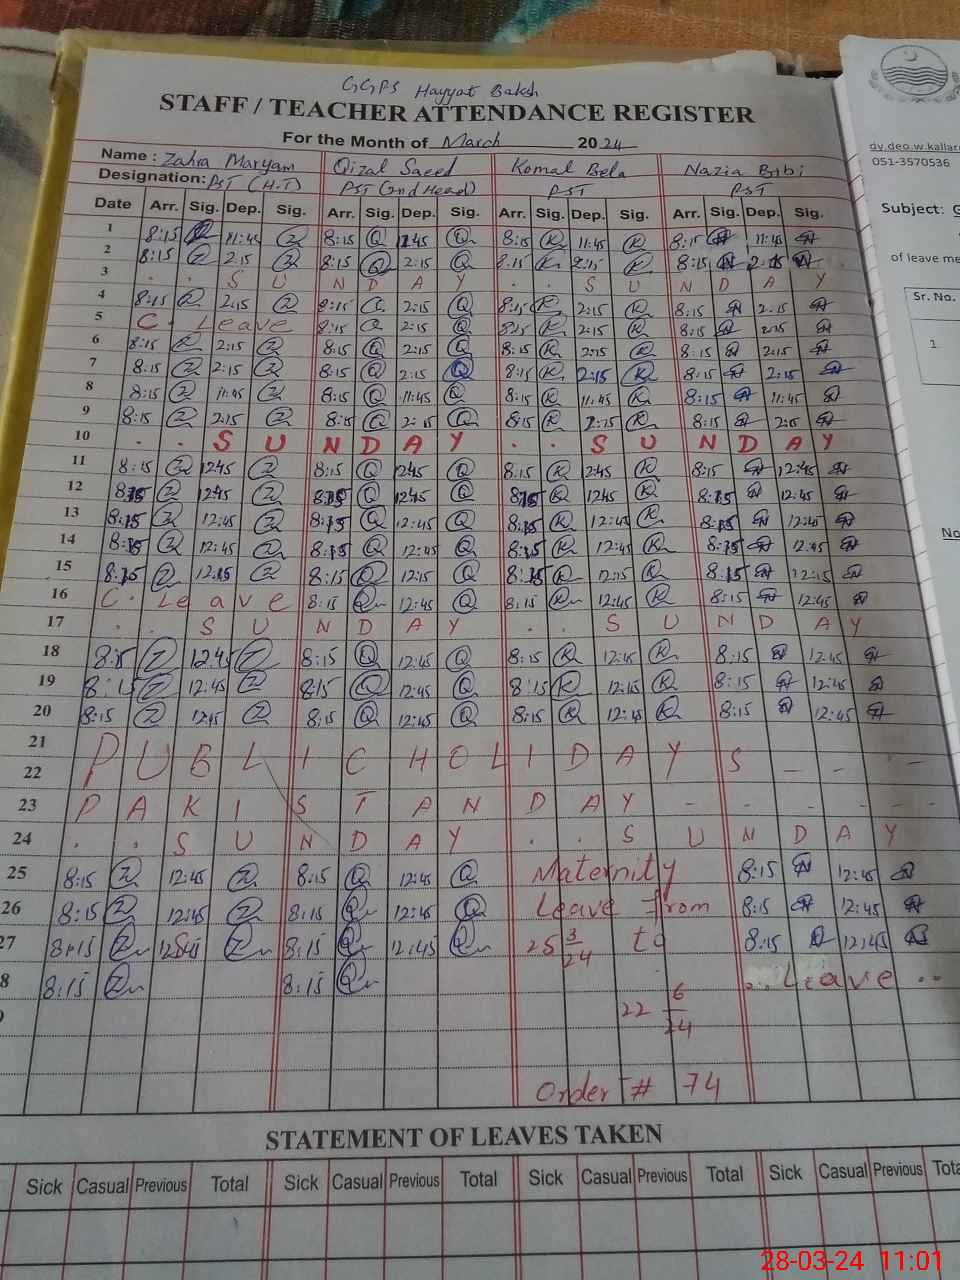 GGPS Hayyat Baksh
STAFF / TEACHER ATTENDANCE REGISTER
For the Month of March 2024
Name : Zahra Maryam Qizal Saeed Komal Bela Nazia Bibi
Designation: PST (H.T) PST (2nd Head) PST PST
Date Arr. Sig. Dep. Sig. Arr. Sig. Dep. Sig. Arr. Sig. Dep. Sig. Arr. Sig. Dep. Sig.
1 8:15 11:45 8:15 Q 1:45 Q 8:15 K 11:45 K 8:15 11:45
2 8:15 2:15 8:15 Q 2:15 Q 8:15 K 2:15 K 8:15 N 2:15 N
3 . . S U N D A Y . . S U N D A Y
4 8:15 2:15 8:15 Q 2:15 Q 8:15 K 2:15 K 8:15 2:15
5 C. Leave 8:15 Q 2:15 Q 8:15 K 2:15 K 8:15 2:15
6 8:15 2:15 8:15 Q 2:15 Q 8:15 K 2:15 K 8:15 2:15
7 8:15 2:15 8:15 Q 2:15 Q 8:15 K 2:15 K 8:15 2:15
8 8:15 11:45 8:15 Q 11:45 Q 8:15 K 11:45 K 8:15 11:45
9 8:15 2:15 8:15 Q 2:15 Q 8:15 K 2:15 K 8:15 2:15
10 . . S U N D A Y . . S U N D A Y
11 8:15 12:45 8:15 Q 12:45 Q 8:15 K 2:45 K 8:15 12:45
12 8:15 12:45 8:15 Q 12:45 Q 8:15 K 12:45 K 8:15 12:45
13 8:15 12:45 8:15 Q 12:45 Q 8:15 K 12:45 K 8:15 12:45
14 8:15 12:45 8:15 Q 12:45 Q 8:15 K 12:45 K 8:15 12:45
15 8:15 12:15 8:15 Q 12:15 Q 8:15 K 12:15 K 8:15 12:15
16 C. Leave 8:15 Q 12:45 Q 8:15 K 12:45 K 8:15 12:45
17 . . S U N D A Y . . S U N D A Y
18 8:15 Z 12:45 Z 8:15 Q 12:45 Q 8:15 K 12:45 K 8:15 12:45
19 8:15 Z 12:45 Z 8:15 Q 12:45 Q 8:15 K 12:45 K 8:15 12:45
20 8:15 Z 12:45 Z 8:15 Q 12:45 Q 8:15 K 12:45 K 8:15 12:45
21
22 P U B L I C H O L I D A Y S - - - -
23 P A K I S T A N D A Y - - - - -
24 . . S U N D A Y . . S U N D A Y
25 8:15 Z 12:45 Z 8:15 Q 12:45 Q Maternity 8:15 12:45
26 8:15 Z 12:45 Z 8:15 Q 12:45 Q Leave from 8:15 12:45
27 8:15 Z 12:45 Z 8:15 Q 12:45 Q 25 3/24 to 8:15 12:45
8 8:15 Z 8:15 Q ..Leave ..
22 6/24
Order # 74
STATEMENT OF LEAVES TAKEN
Sick Casual Previous Total Sick Casual Previous Total Sick Casual Previous Total Sick Casual Previous Tota
dy.deo.w.kallar
051-3570536
Subject: G
of leave me
Sr. No.
1.
No
28-03-24 11:01